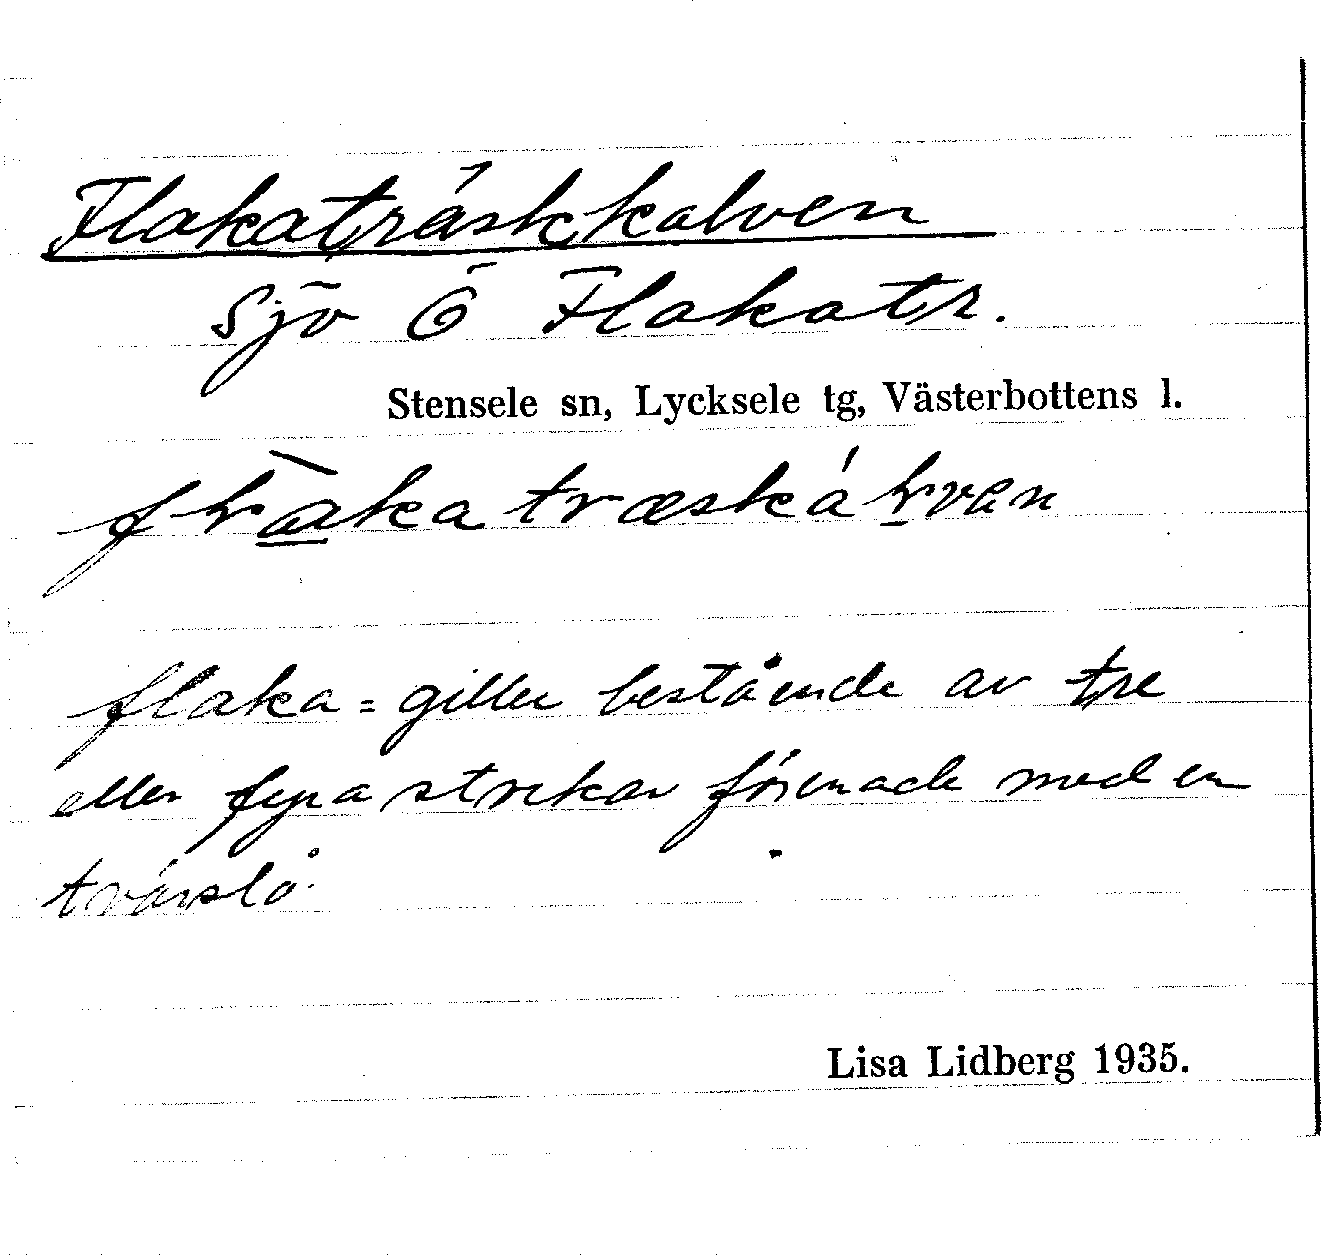 Flakaträskkalven
Sjö Ö Flakatr.
Stensele sn, Lycksele tg, Västerbottens l.
flaka = giller bestående av tre
eller fyra stockar förenade med en
tvärslå.
Lisa Lidberg 1935.